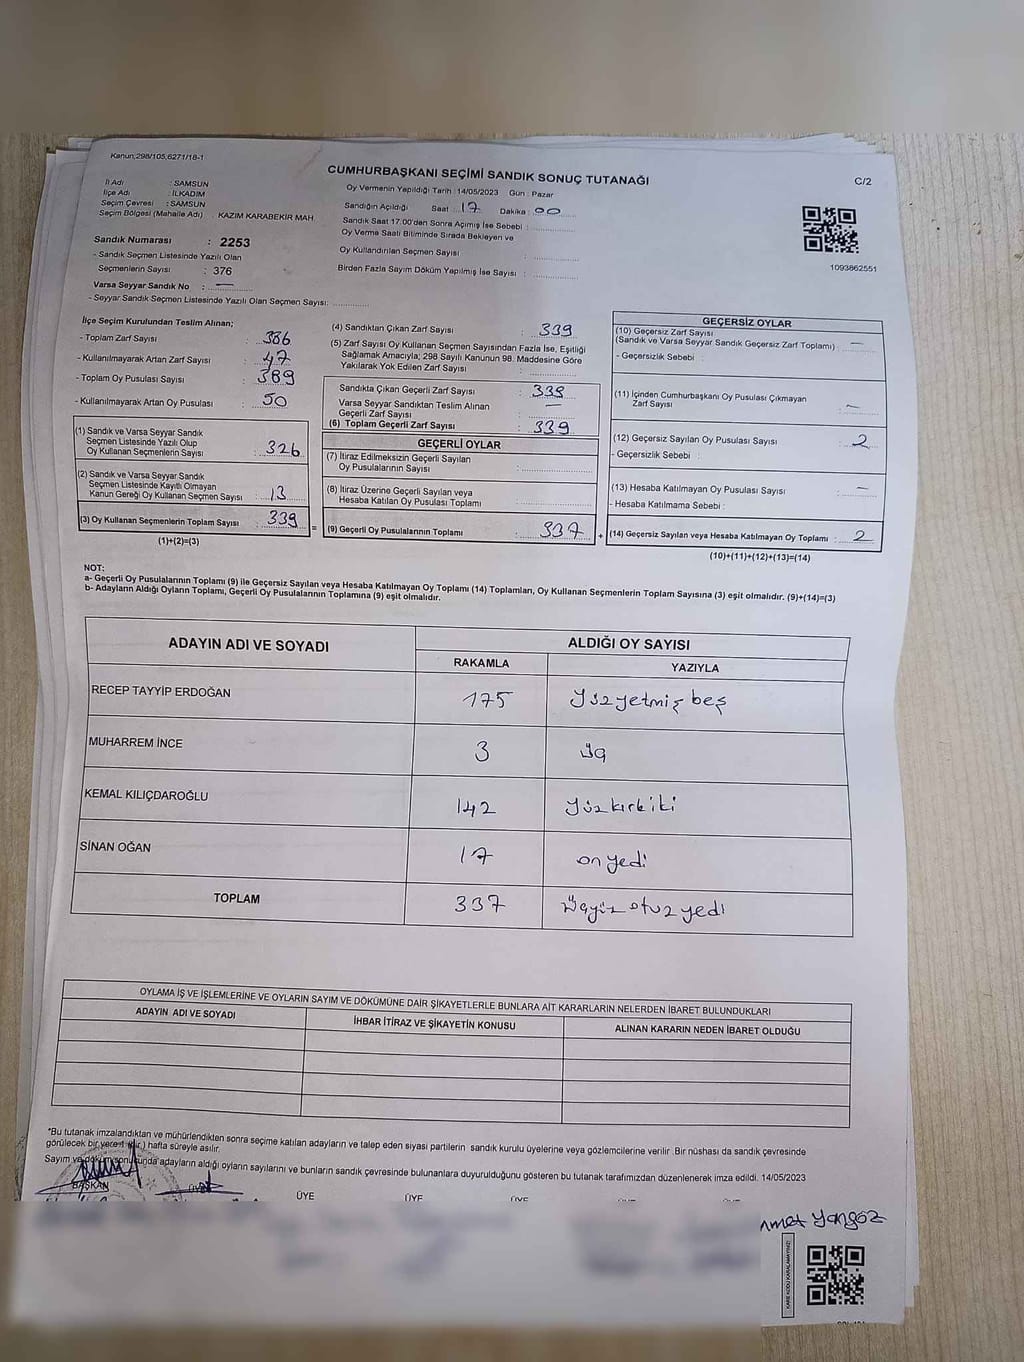 Kanun;298/105,6271/18-1
CUMHURBAŞKANI SEÇİMİ SANDIK SONUÇ TUTANAĞI
C/2
İl Adı : SAMSUN
İlçe Adı : İLKADIM
Seçim Çevresi : SAMSUN
Seçim Bölgesi (Mahalle Adı) : KAZIM KARABEKİR MAH.
Oy Vermenin Yapıldığı Tarih : 14/05/2023 Gün : Pazar
Sandığın Açıldığı Saat : 17 Dakika : 00
Sandık Saat 17.00'den Sonra Açımış İse Sebebi :
Oy Verme Saati Bitiminde Sırada Bekleyen ve
Oy Kullandırılan Seçmen Sayısı :
Birden Fazla Sayım Döküm Yapılmış İse Sayısı :
1093862551
Sandık Numarası : 2253
- Sandık Seçmen Listesinde Yazılı Olan
Seçmenlerin Sayısı : 376
Varsa Seyyar Sandık No : —
- Seyyar Sandık Seçmen Listesinde Yazılı Olan Seçmen Sayısı:
İlçe Seçim Kurulundan Teslim Alınan;
- Toplam Zarf Sayısı : 386
- Kullanılmayarak Artan Zarf Sayısı : 47
- Toplam Oy Pusulası Sayısı : 389
- Kullanılmayarak Artan Oy Pusulası : 50
(1) Sandık ve Varsa Seyyar Sandık
Seçmen Listesinde Yazılı Olup
Oy Kullanan Seçmenlerin Sayısı : 326
(2) Sandık ve Varsa Seyyar Sandık
Seçmen Listesinde Kayıtlı Olmayan
Kanun Gereği Oy Kullanan Seçmen Sayısı : 13
(3) Oy Kullanan Seçmenlerin Toplam Sayısı : 339
(1)+(2)=(3)
(4) Sandıktan Çıkan Zarf Sayısı : 339
(5) Zarf Sayısı Oy Kullanan Seçmen Sayısından Fazla İse, Eşitliği
Sağlamak Amacıyla; 298 Sayılı Kanunun 98. Maddesine Göre
Yakılarak Yok Edilen Zarf Sayısı :
Sandıkta Çıkan Geçerli Zarf Sayısı : 339
Varsa Seyyar Sandıktan Teslim Alınan
Geçerli Zarf Sayısı : —
(6) Toplam Geçerli Zarf Sayısı : 339
GEÇERLİ OYLAR
(7) İtiraz Edilmeksizin Geçerli Sayılan
Oy Pusulalarının Sayısı :
(8) İtiraz Üzerine Geçerli Sayılan veya
Hesaba Katılan Oy Pusulası Toplamı :
= (9) Geçerli Oy Pusulalarının Toplamı : 337 +
GEÇERSİZ OYLAR
(10) Geçersiz Zarf Sayısı
(Sandık ve Varsa Seyyar Sandık Geçersiz Zarf Toplamı) : —
- Geçersizlik Sebebi :
(11) İçinden Cumhurbaşkanı Oy Pusulası Çıkmayan
Zarf Sayısı : —
(12) Geçersiz Sayılan Oy Pusulası Sayısı : 2
- Geçersizlik Sebebi :
(13) Hesaba Katılmayan Oy Pusulası Sayısı : —
- Hesaba Katılmama Sebebi :
(14) Geçersiz Sayılan veya Hesaba Katılmayan Oy Toplamı : 2
(10)+(11)+(12)+(13)=(14)
NOT:
a- Geçerli Oy Pusulalarının Toplamı (9) ile Geçersiz Sayılan veya Hesaba Katılmayan Oy Toplamı (14) Toplamları, Oy Kullanan Seçmenlerin Toplam Sayısına (3) eşit olmalıdır. (9)+(14)=(3)
b- Adayların Aldığı Oyların Toplamı, Geçerli Oy Pusulalarının Toplamına (9) eşit olmalıdır.
ADAYIN ADI VE SOYADI ALDIĞI OY SAYISI
RAKAMLA YAZIYLA
RECEP TAYYİP ERDOĞAN 175 Yüzyetmiş beş
MUHARREM İNCE 3 üç
KEMAL KILIÇDAROĞLU 142 Yüz kırk iki
SİNAN OĞAN 17 on yedi
TOPLAM 337 Üçyüz otuz yedi
OYLAMA İŞ VE İŞLEMLERİNE VE OYLARIN SAYIM VE DÖKÜMÜNE DAİR ŞİKAYETLERLE BUNLARA AİT KARARLARIN NELERDEN İBARET BULUNDUKLARI
ADAYIN ADI VE SOYADI İHBAR İTİRAZ VE ŞİKAYETİN KONUSU ALINAN KARARIN NEDEN İBARET OLDUĞU
*Bu tutanak imzalandıktan ve mühürlendikten sonra seçime katılan adayların ve talep eden siyasi partilerin sandık kurulu üyelerine veya gözlemcilerine verilir. Bir nüshası da sandık çevresinde
görülecek bir yere 1 (bir) hafta süreyle asılır.
Sayım ve döküm sonucunda adayların aldığı oyların sayılarını ve bunların sandık çevresinde bulunanlara duyurulduğunu gösteren bu tutanak tarafımızdan düzenlenerek imza edildi. 14/05/2023
BAŞKAN ÜYE ÜYE ÜYE ÜYE
Yangöz
KARE KODU KARALAMAYINIZ!